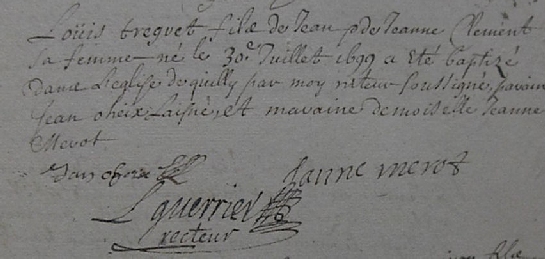 Loüis treguet fils de Jean et de Jeanne Clement
sa femme né le 30e Juillet 1699 a été baptizé
dans L'eglise de quilly par moy recteur soussigné, parain
Jean cheix Laisné, et maraine demoiselle Jeanne
Merot
Jan cheix
Janne merot
L guerrier
recteur